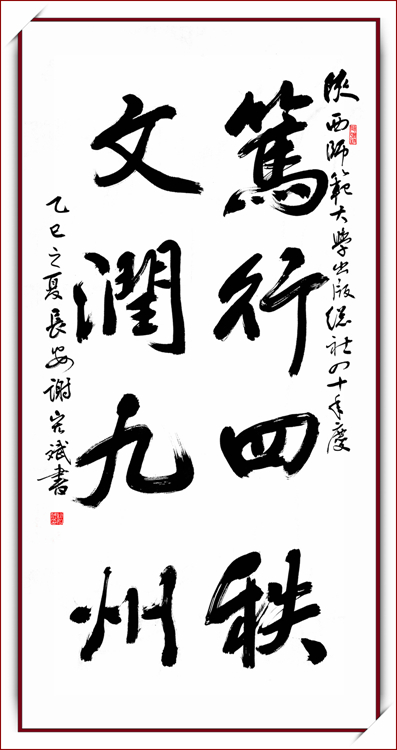 陝西師範大學出版總社四十年慶
篤行四秩
文潤九州
乙巳之夏長安謝宏斌書